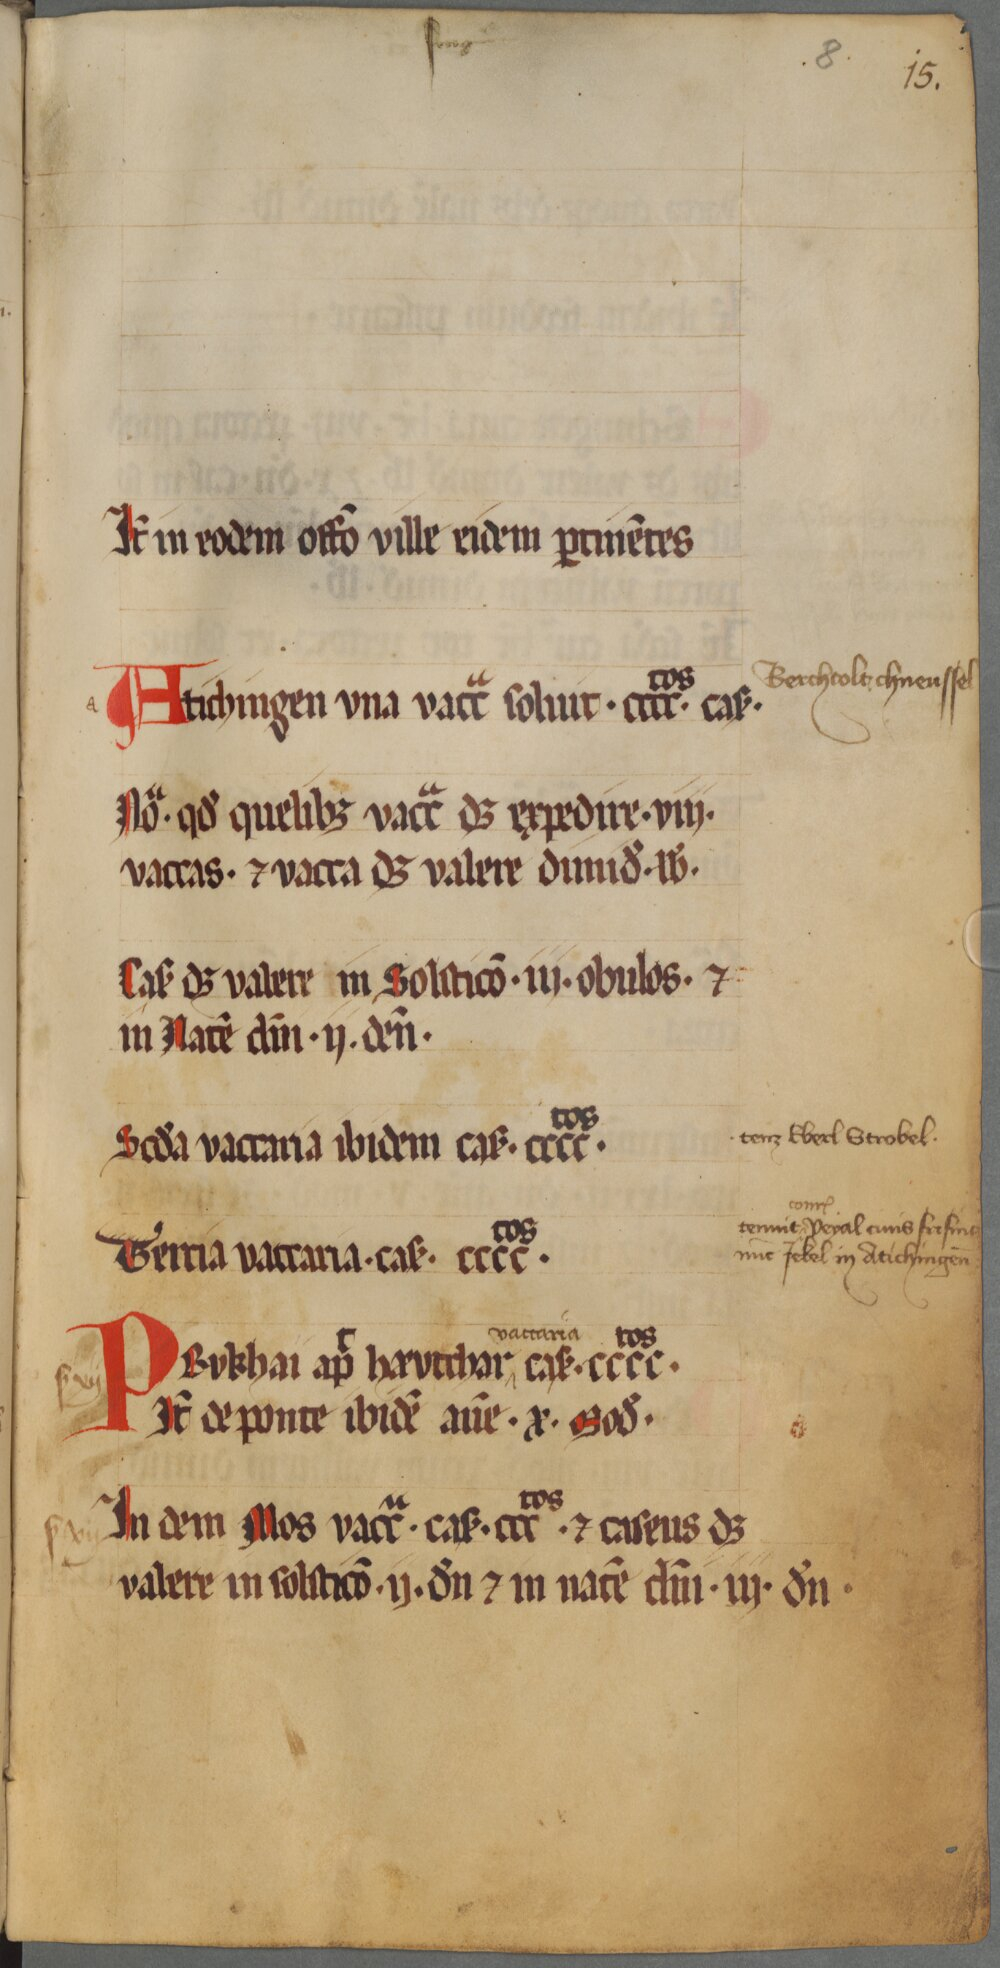 .8. 15.
It̄ in eodem offō ville eidem ptinētes
Atichingen vna vaccᵃ soluit · ccccᵗᵒˢ · cas̄ · Berchtolt chneussel
Noᵃ · qđ quelibꝫ vaccᵃ dꝫ expedire · viij ·
vaccas · ⁊ vacca dꝫ valere dimid̄ · lb̄ ·
Cas̄ dꝫ valere in Solsticō · iij · obulos · ⁊
in Natē dn̄i · ij · den̄ ·
Scđa vaccaria ibidem cas̄ · ccccᵗᵒˢ · · tenꝫ Eberl Strobel ·
Tercia vaccaria · cas̄ · ccccᵗᵒˢ ·
tenuit Peyal ciuis
nūc Jekel in Atichingen̄
vaccaria
PRvkhai ap̄ hævtchar cas̄ · ccccᵗᵒˢ ·
It̄ de ponte ibidē auē · x · Mođ ·
In dem Mos vaccᵃ · cas̄ · cccᵗᵒˢ · ⁊ caseus dꝫ
valere in solsticō · ij · đn ⁊ in natē dn̄i · iij · đn ·